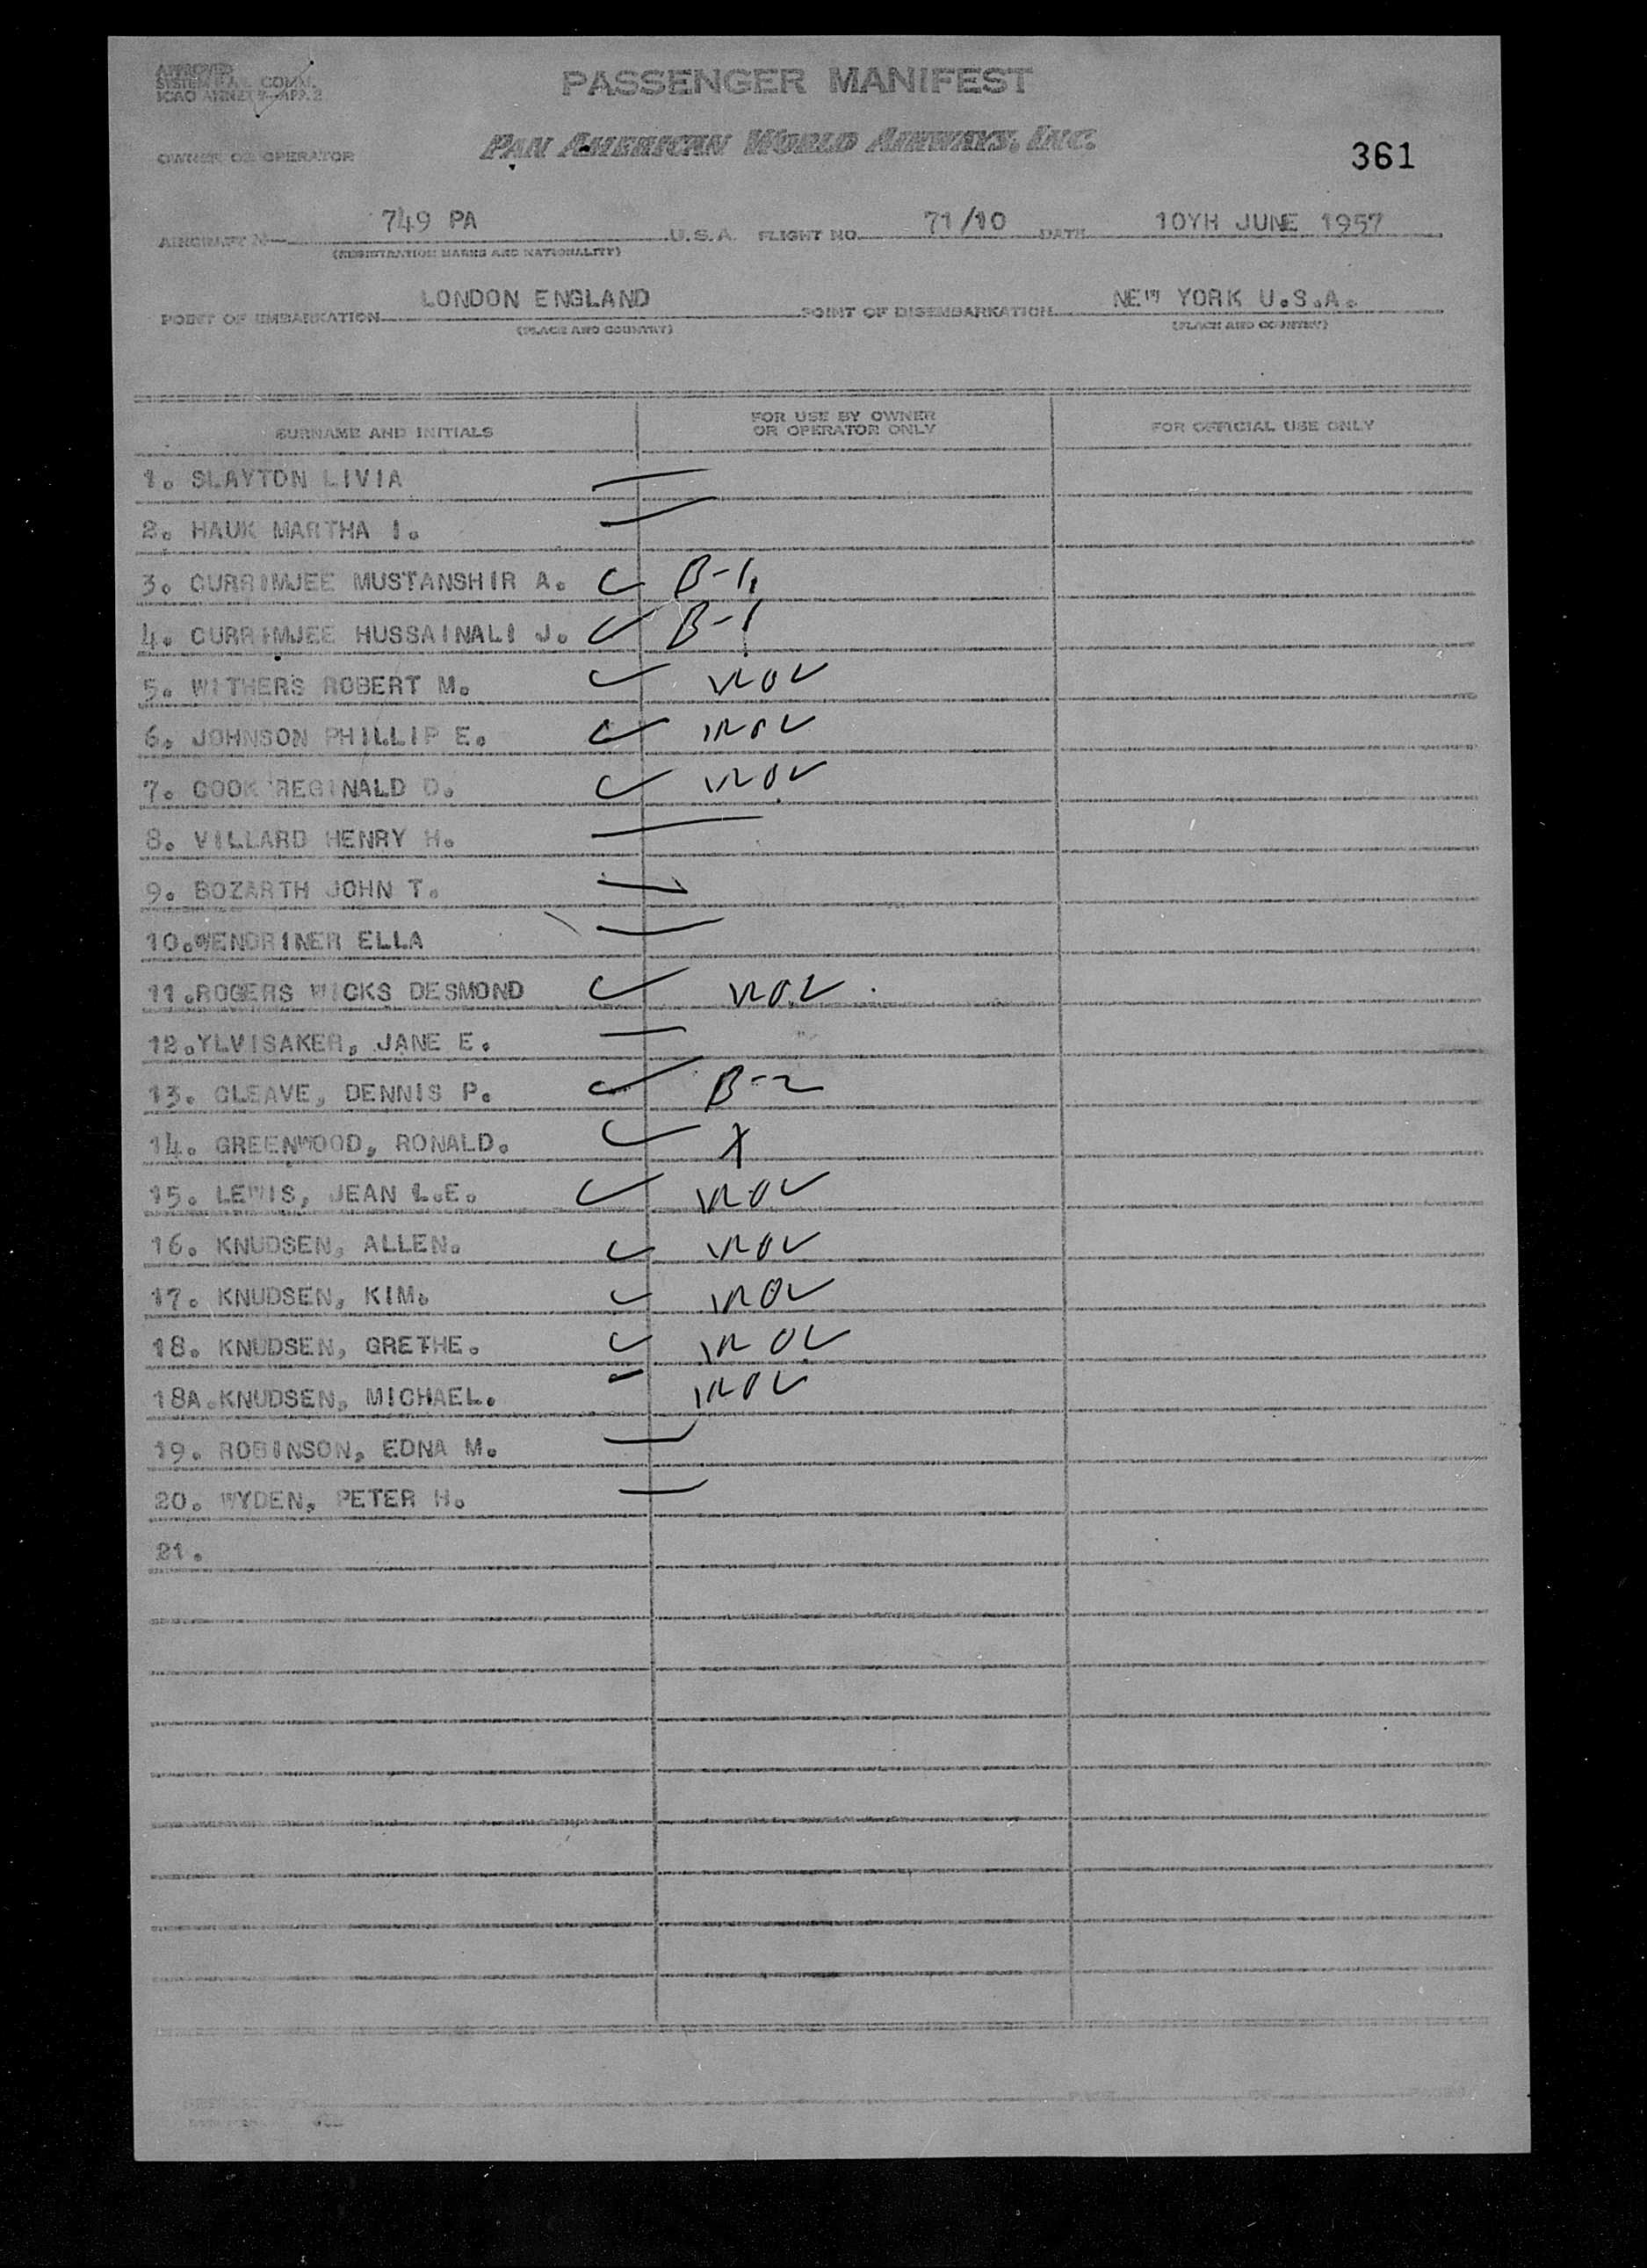 APPROVED
SYSTEM FAL. COMM.
ICAO ANNEX 9-APP. 2
PASSENGER MANIFEST
PAN AMERICAN WORLD AIRWAYS, INC.
OWNER OR OPERATOR
361
AIRCRAFT N- 749 PA U.S.A. FLIGHT NO. 71/10 DATE 10YH JUNE 1957
(REGISTRATION MARKS AND NATIONALITY)
POINT OF EMBARKATION LONDON ENGLAND POINT OF DISEMBARKATION NEW YORK U.S.A.
(PLACE AND COUNTRY) (PLACE AND COUNTRY)
SURNAME AND INITIALS FOR USE BY OWNER OR OPERATOR ONLY FOR OFFICIAL USE ONLY
1. SLAYTON LIVIA
2. HAUK MARTHA I.
3. CURRIMJEE MUSTANSHIR A. B-1
4. CURRIMJEE HUSSAINALI J. B-1
5. WITHERS ROBERT M.
6. JOHNSON PHILLIP E.
7. COOK REGINALD D.
8. VILLARD HENRY H.
9. BOZARTH JOHN T.
10.WENDRINER ELLA
11.ROGERS WICKS DESMOND
12.YLVISAKER, JANE E.
13. CLEAVE, DENNIS P. B-2
14. GREENWOOD, RONALD. X
15. LEWIS, JEAN L.E.
16. KNUDSEN, ALLEN.
17. KNUDSEN, KIM.
18. KNUDSEN, GRETHE.
18A.KNUDSEN, MICHAEL.
19. ROBINSON, EDNA M.
20. WYDEN, PETER H.
21.